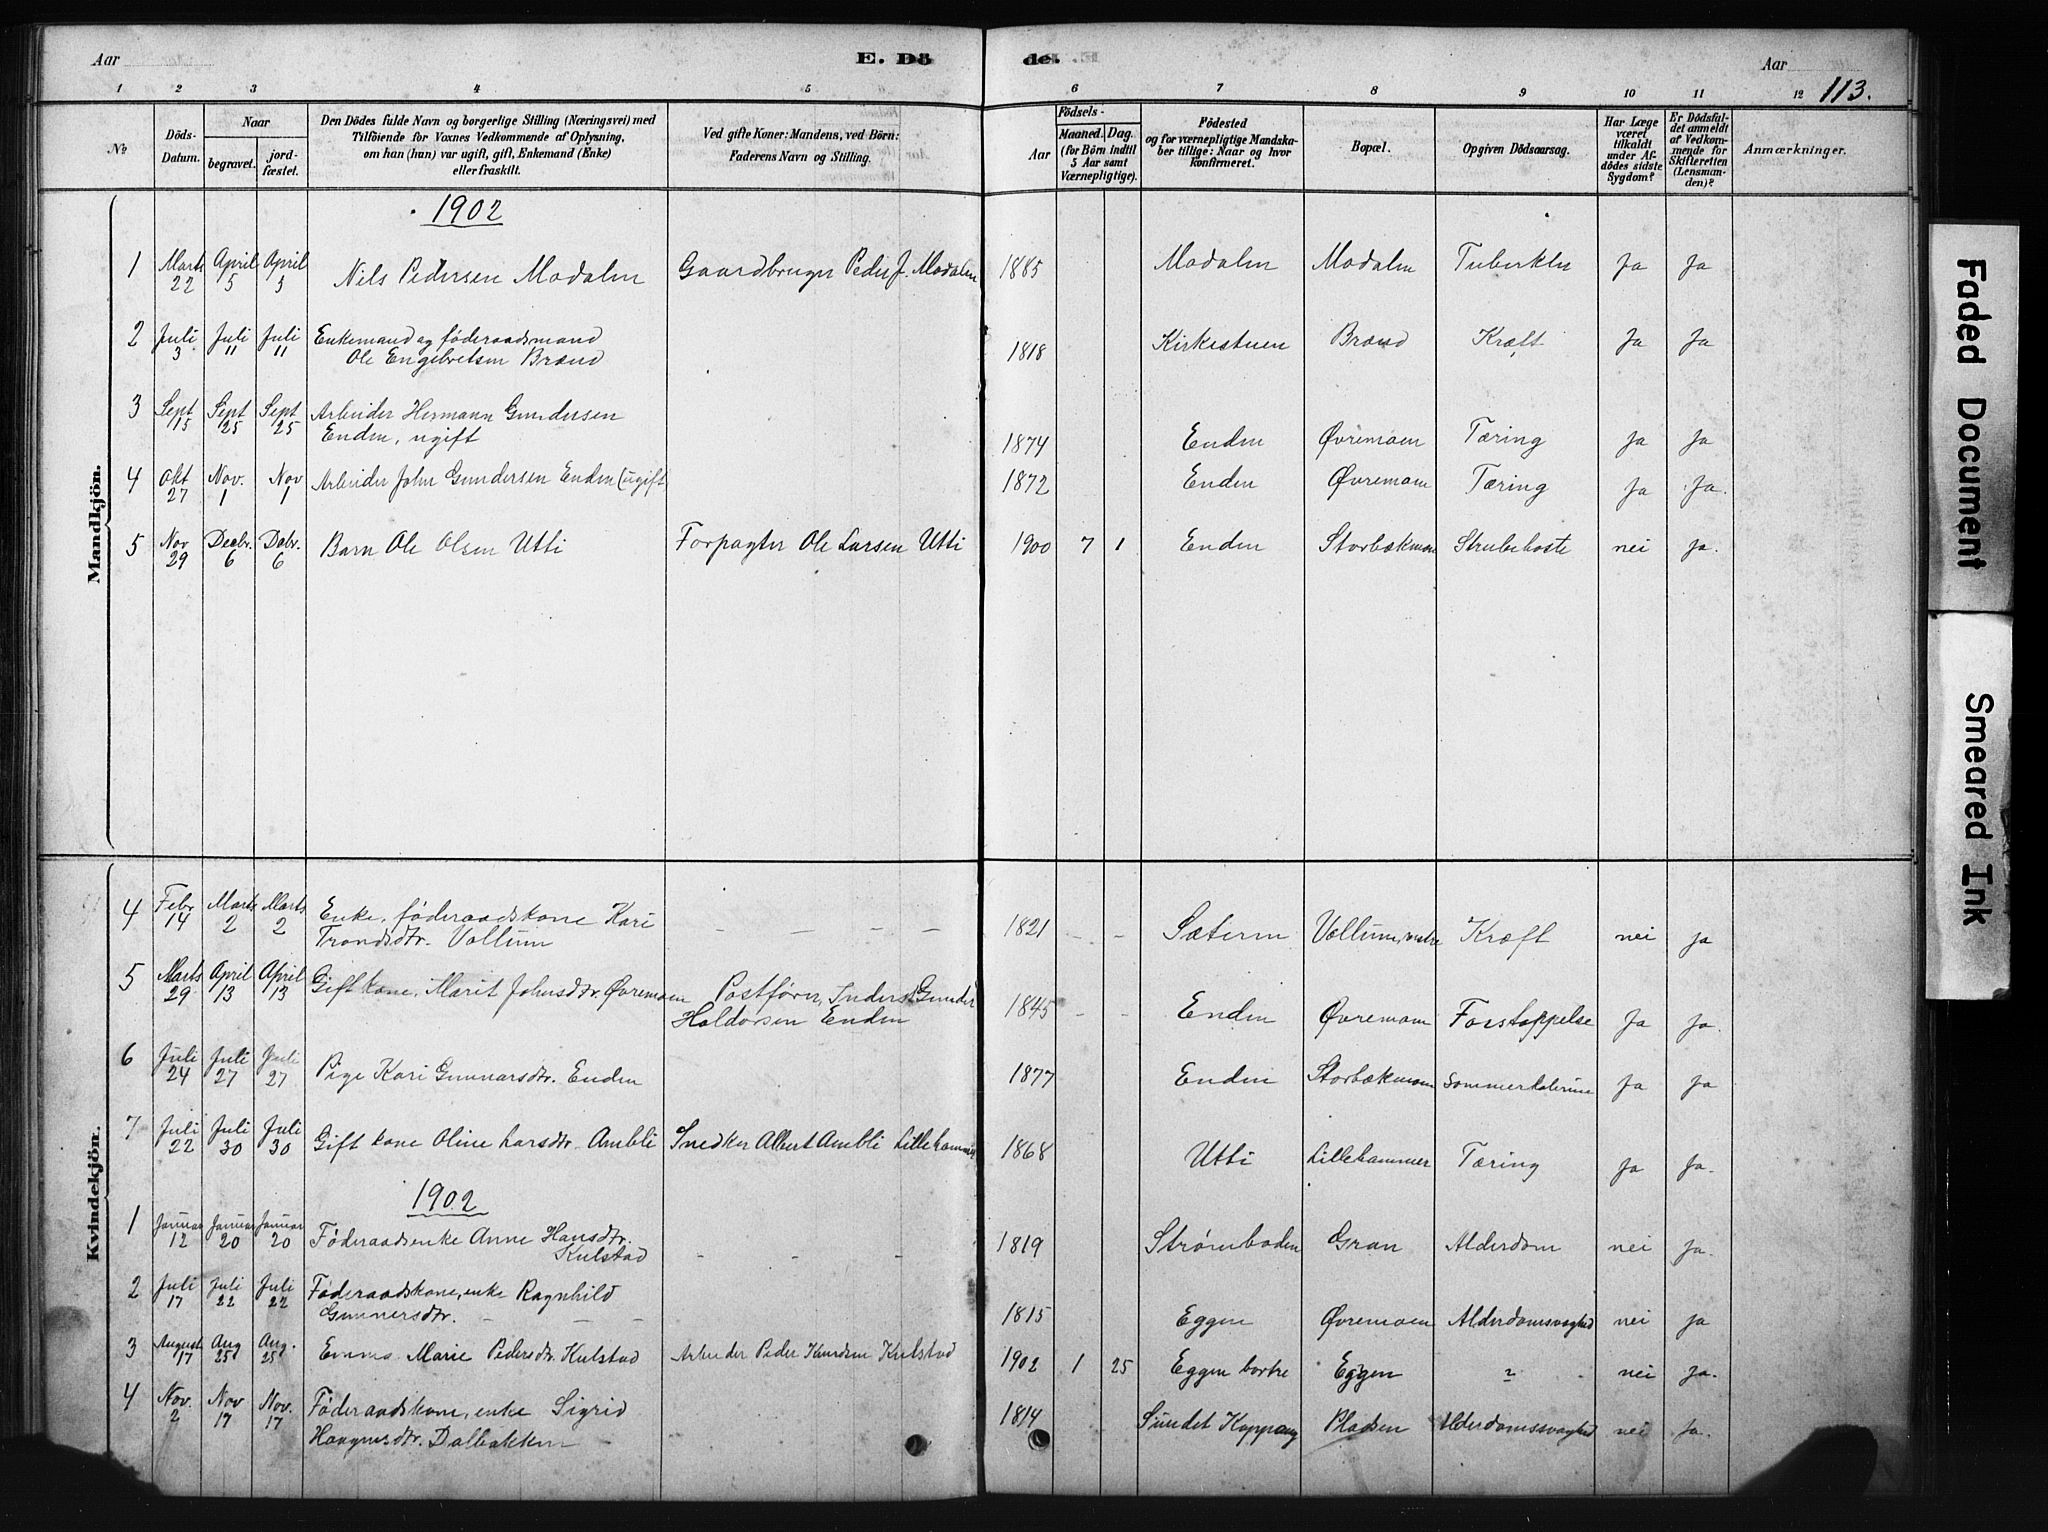 Aar E. Dö de. Aar
1 2 3 4 5 6 7 8 9 10 11 12 113.
№
Döds-
Datum.
Naar
begravet.
jord-
fæstet.
Den Dödes fulde Navn og borgerlige Stilling (Næringsvei) med
Tilföiende for Voxnes Vedkommende af Oplysning,
om han (hun) var ugift, gift, Enkemand (Enke)
eller fraskilt.
Ved gifte Koner: Mandens, ved Börn:
Faderens Navn og Stilling.
Födsels-
Aar
Maaned. Dag.
(for Börn indtil
5 Aar samt
Værnepligtige).
Födested
og for værnepligtige Mandska-
ber tillige: Naar og hvor
konfirmeret.
Bopæl.
Opgiven Dödsaarsag.
Har Læge
været
tilkaldt
under Af-
dödes sidste
Sygdom?
Er Dödsfal-
det anmeldt
af Vedkom-
mende for
Skifteretten
(Lensman-
den)?
Anmærkninger.
Mandkjön.
1902
1 Marts 22 April 5 April 3 Nils Pedersen Modalen Gaardbruger Peder J. Modalen 1885 Modalen Modalen Tuberkler Ja Ja
2 Juli 3 Juli 11 Juli 11 Enkemand og føderaadsmand
Ole Engebretsen Brænd 1818 Kirkestuen Brænd Kræft Ja Ja
3 Sept 15 Sept 25 Sept 25 Arbeider Hermann Gundersen
Enden, ugift 1874 Enden Øvremoen Tæring Ja Ja
4 Okt 27 Nov. 1 Nov 1 Arbeider John Gundersen Enden (ugift 1872 Enden Øvremoen Tæring Ja Ja.
5 Nov 29 Decbr. 6 Debr. 6 Barn Ole Olsen Utti Forpagter Ole Larsen Utti 1900 7 1 Enden Storbækmoen Strubehoste nei Ja.
Kvindekjön.
4 Febr 14 Marts 2 Marts 2 Enke, føderaadskone Kari
Trondsdtr. Vollum - - - - 1821 - - Sæteren Vollum, vestre Kræft nei Ja
5 Marts 29 April 13 April 13 Gift kone, Marit Johnsdtr. Øvremoen Postfører, Inderst Gunder
Haldorsen Enden 1845 - - Enden Øvremoen Forstoppelse Ja Ja.
6 Juli 24 Juli 27 Juli 27 Pige Kari Gunnarsdtr. Enden 1877 Enden Storbækmoen Sommerkolerine Ja Ja
7 Juli 22 Juli 30 Juli 30 Gift kone Oline Larsdtr. Ambli Snedker Albert Ambli Lillehammer 1868 Utti Lillehammer Tæring Ja Ja.
1902
1 Januar 12 Januar 20 Januar 20 Føderaadsenke Anne Hansdtr.
Kulstad - - - 1819 Strømboden Gran Alderdom nei Ja.
2 Juli 17 Juli 22 Juli 22 Føderaadskone, enke Ragnhild
Gunnersdtr. - - - 1815 Eggen Øvremoen Alderdomssvaghed nei Ja
3 August 17 Aug 25 Aug. 25 Emma Marie Pedersdtr. Kulstad Arbeider Peder Knudsen Kulstad 1902 1 25 Eggen bortre Eggen ? nei Ja.
4 Nov. 2 Nov 17 Nov. 17 Føderaadskone, enke Sigrid
Haagensdtr. Dalbakken - 1814 Sundet Koppang Pladsen Alderdomssvaghed nei Ja.
Faded Document
Smeared Ink